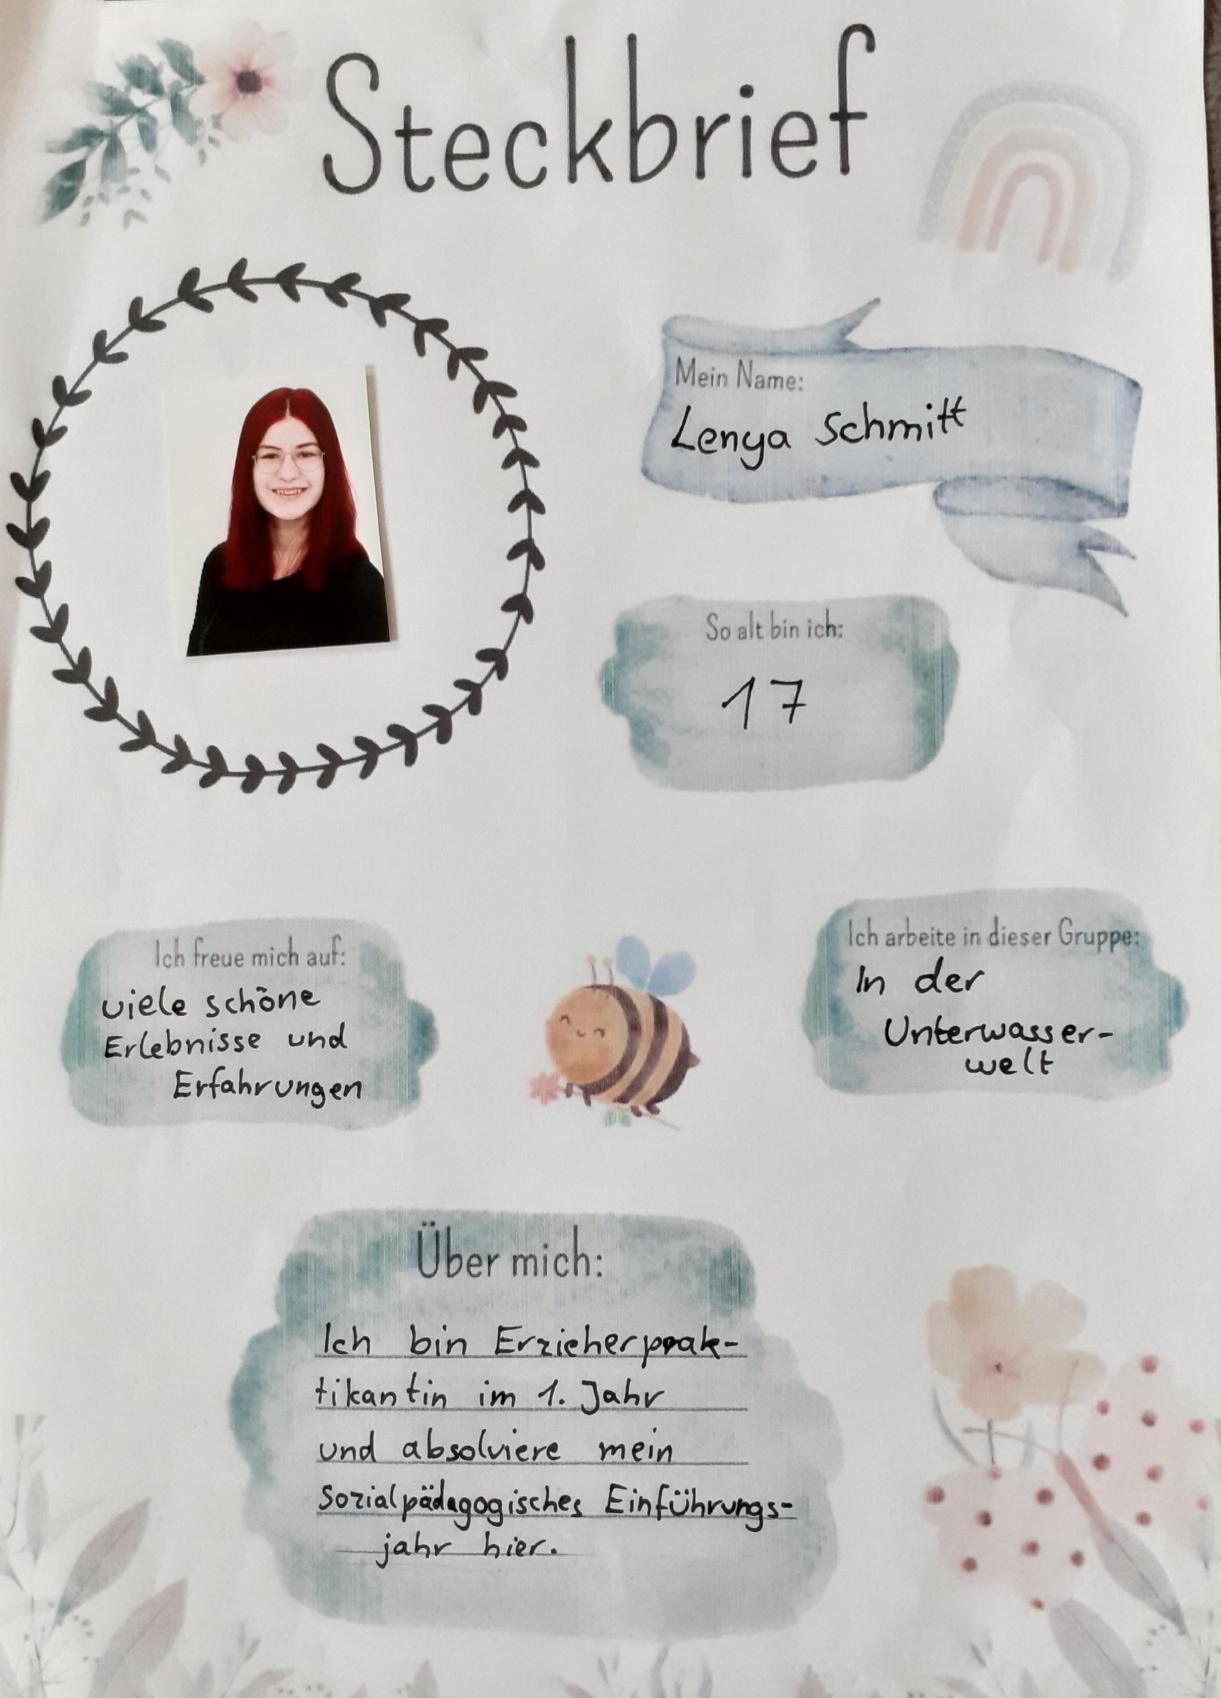 Steckbrief
Mein Name:
Lenya Schmitt
So alt bin ich:
17
Ich freue mich auf:
viele schöne
Erlebnisse und
Erfahrungen
Ich arbeite in dieser Gruppe:
In der
Unterwasser-
welt
Über mich:
Ich bin Erzieherprak-
tikantin im 1. Jahr
und absolviere mein
sozialpädagogisches Einführungs-
jahr hier.